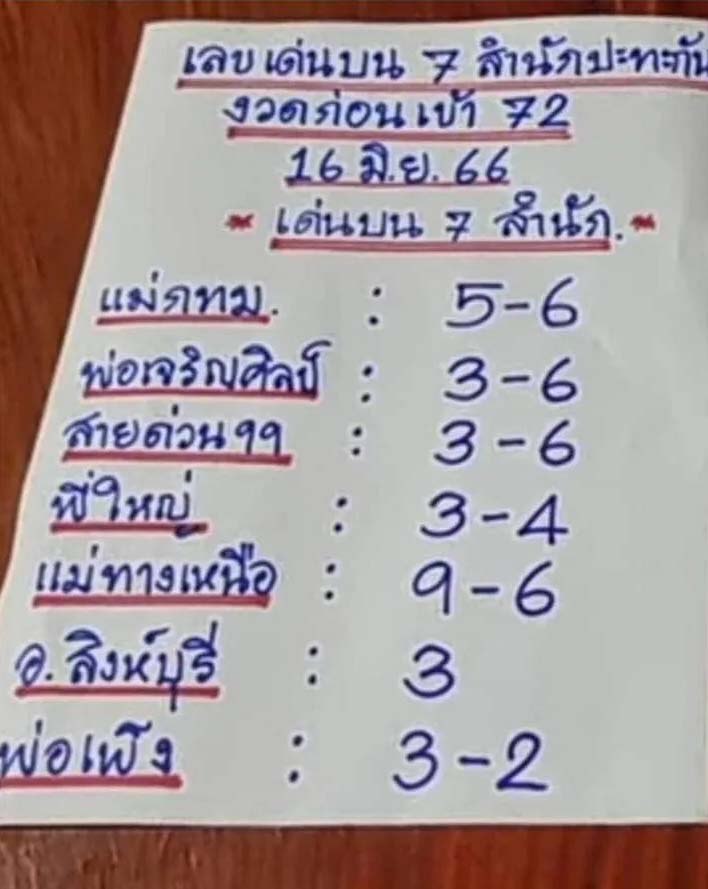 เลขเด่นบน 7 สำนักปะทะกัน
งวดก่อนเข้า 72
16 มิ.ย. 66
* เด่นบน 7 สำนัก. *
แม่กทม. : 5-6
พ่อเจริญศิลป์ : 3-6
สายด่วน 99 : 3-6
พี่ใหญ่ : 3-4
แม่ทางเหนือ : 9-6
อ.สิงห์บุรี : 3
พ่อเพ็ง : 3-2